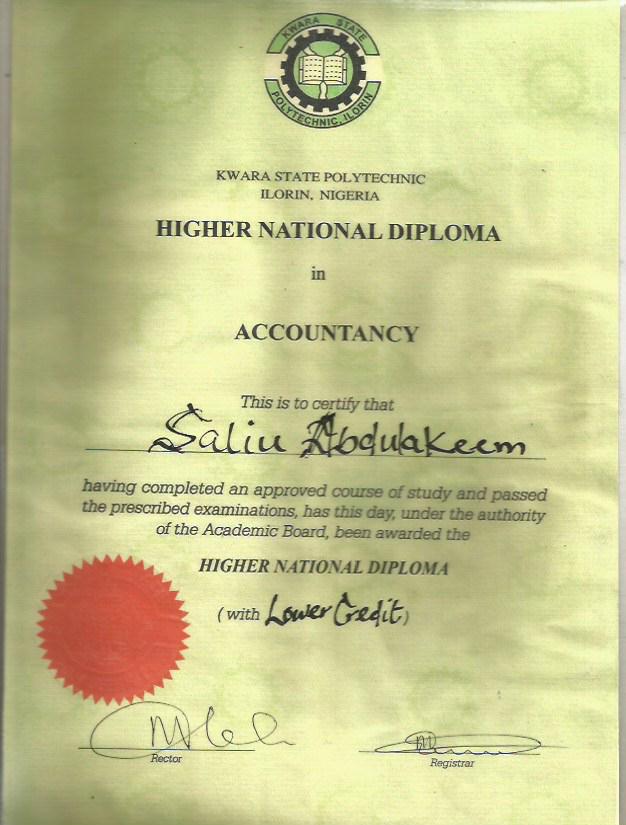 KWARA STATE
POLYTECHNIC, ILORIN
KWARA STATE POLYTECHNIC
ILORIN, NIGERIA
HIGHER NATIONAL DIPLOMA
in
ACCOUNTANCY
This is to certify that
Saliu Abdulakeem
having completed an approved course of study and passed
the prescribed examinations, has this day, under the authority
of the Academic Board, been awarded the
HIGHER NATIONAL DIPLOMA
(with Lower Credit)
Rector
Registrar